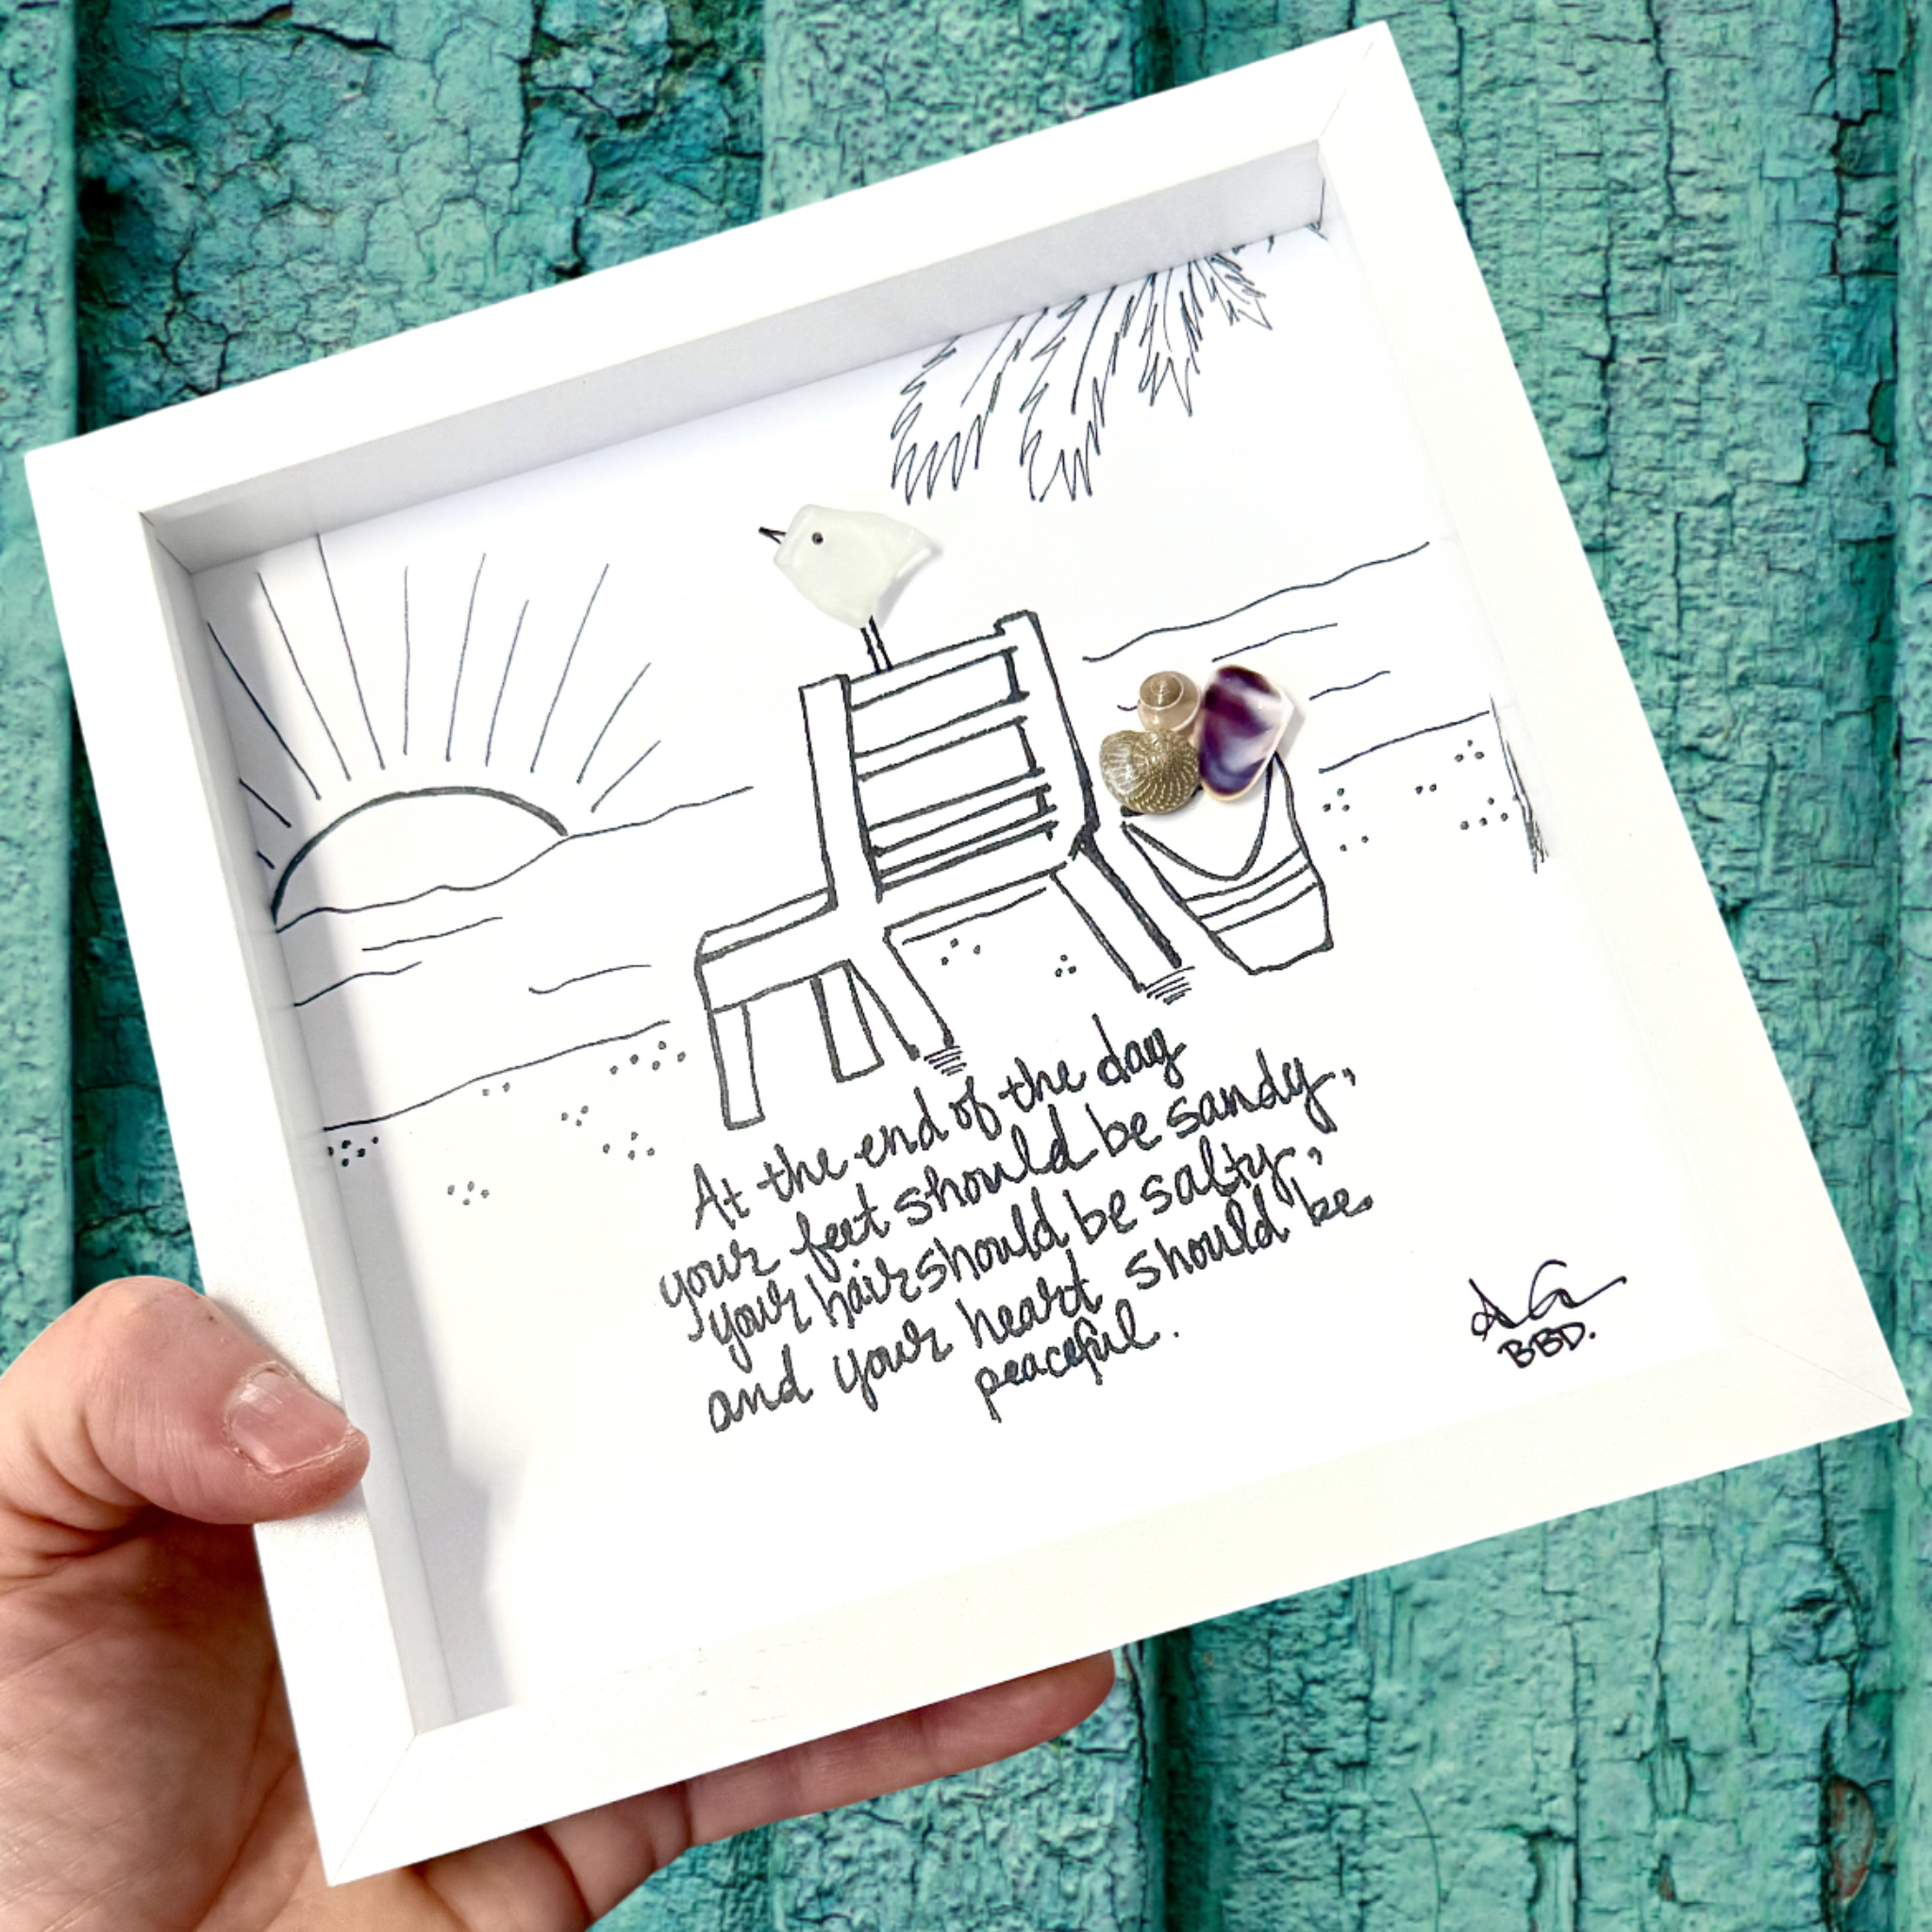 At the end of the day
your feet should be sandy,
your hair should be salty,
and your heart should be
peaceful.
BBD.